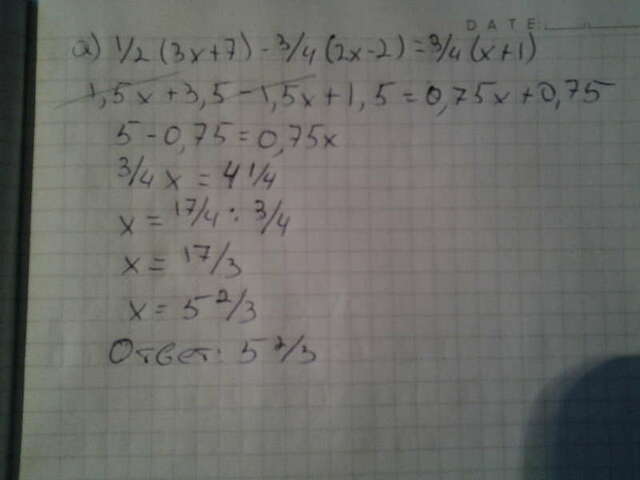 DATE:
а) 1/2 (3x+7) - 3/4 (2x-2) = 3/4 (x+1)
1,5x + 3,5 - 1,5x + 1,5 = 0,75x + 0,75
5 - 0,75 = 0,75x
3/4 x = 4 1/4
x = 17/4 : 3/4
x = 17/3
x = 5 2/3
Ответ: 5 2/3